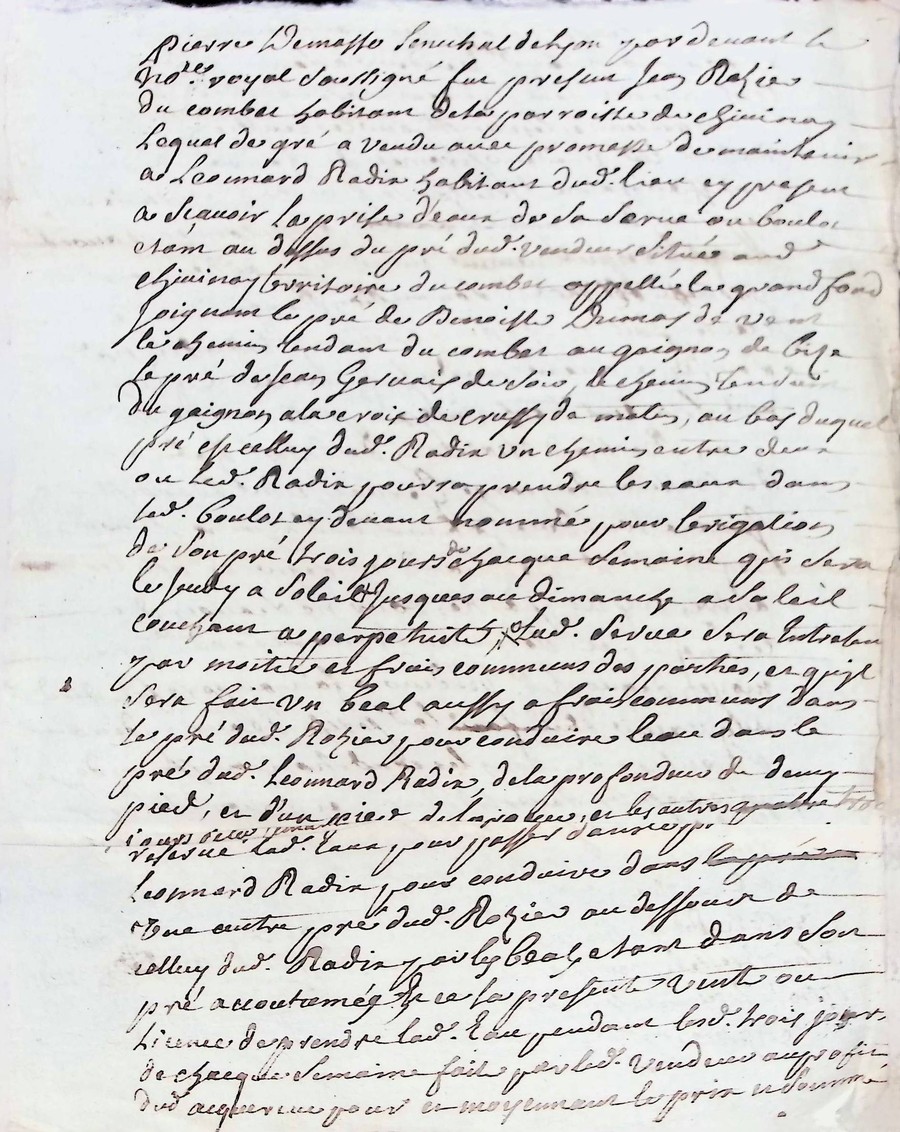 pierre Demasso Senechal de lyon par devant le
No.re royal Soussigné fut present Jean Rozier
du combat habitant de la parroisse de chivinay
Lequel de gré a vendu avec promesse de maintenir
a Leonnard Radix habitant dud. lieu cy present
a Sçavoir la prise d'eaux de Sa Serve ou boulot
etant au dessus du pré dud. vendeur Située aud.
chivinay territoire du combat appellé le grand fond
joignant le pré de Benoiste Dumas de vent
le chemin tendant du combat au gaignon de bize
le pré de Jean Gervais de Soir, le chemin tendant
du gaignon a la croix de crussy de matin, au bas duquel
pré est celluy dud. Radix un chemin entre deux
ou led. Radix pourra prendre les eaux dans
led. boulot cy devant nommé pour lerigation
de Son pré trois jours de chacque Semaine qui Sera
le Jeudy a Soleil Jusques au dimanche a Soleil
couchant a perpetuité, lad. Serve Sera Entretenu
par moitié et frais communs des parties, et qu'il
Sera fait un beal aussy a frais communs dans
le pré dud. Rozier pour conduire leau dans le
pré dud. Leonnard Radix, de la profondeur de demy
pied, et d'un pied de largeur, et les autres quatre
jours de la Semaine
reserve lad. Eau pour passer dans
Leonnard Radix pour conduire dans le pré
Une autre pré dud. Rozier au dessous de
celluy dud. Radix par les beals etant dans Son
pré accoutumés Et ce la presente vente ou
Licence de prendre lad. Eau pendant lesd. trois jours
de chacque Semaine fait par led. vendeur au profit
dud. acquereur pour et moyennant le prix et Somme